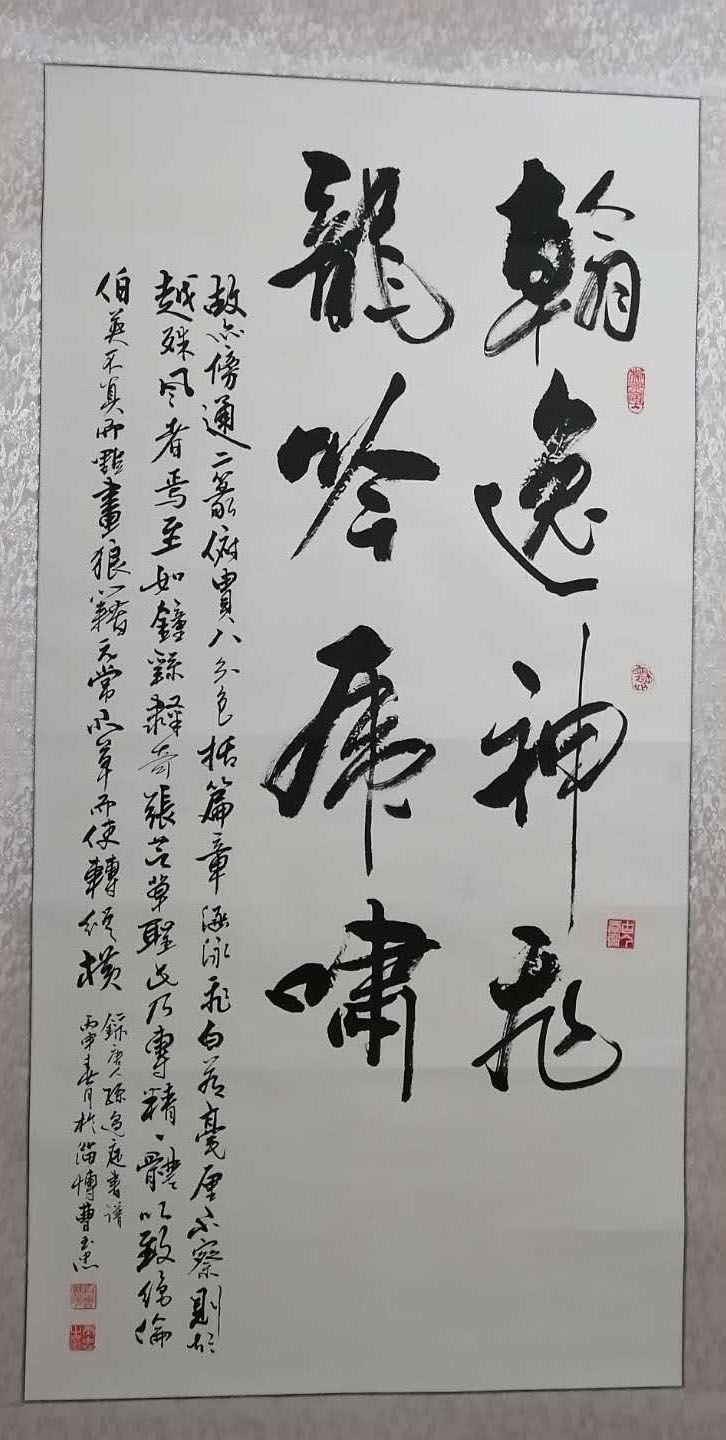 翰逸神飛
龍吟虎嘯
故亦傍通二篆俯貫八分包括篇章涵泳飛白若毫厘不察則胡
越殊风者焉至如鐘繇隸奇張芝草聖此乃專精一體以致絕倫
伯英不真而點畫狼藉元常不草而使轉縱橫
錄唐人孫過庭書譜
丙申春月於淄博曹玉